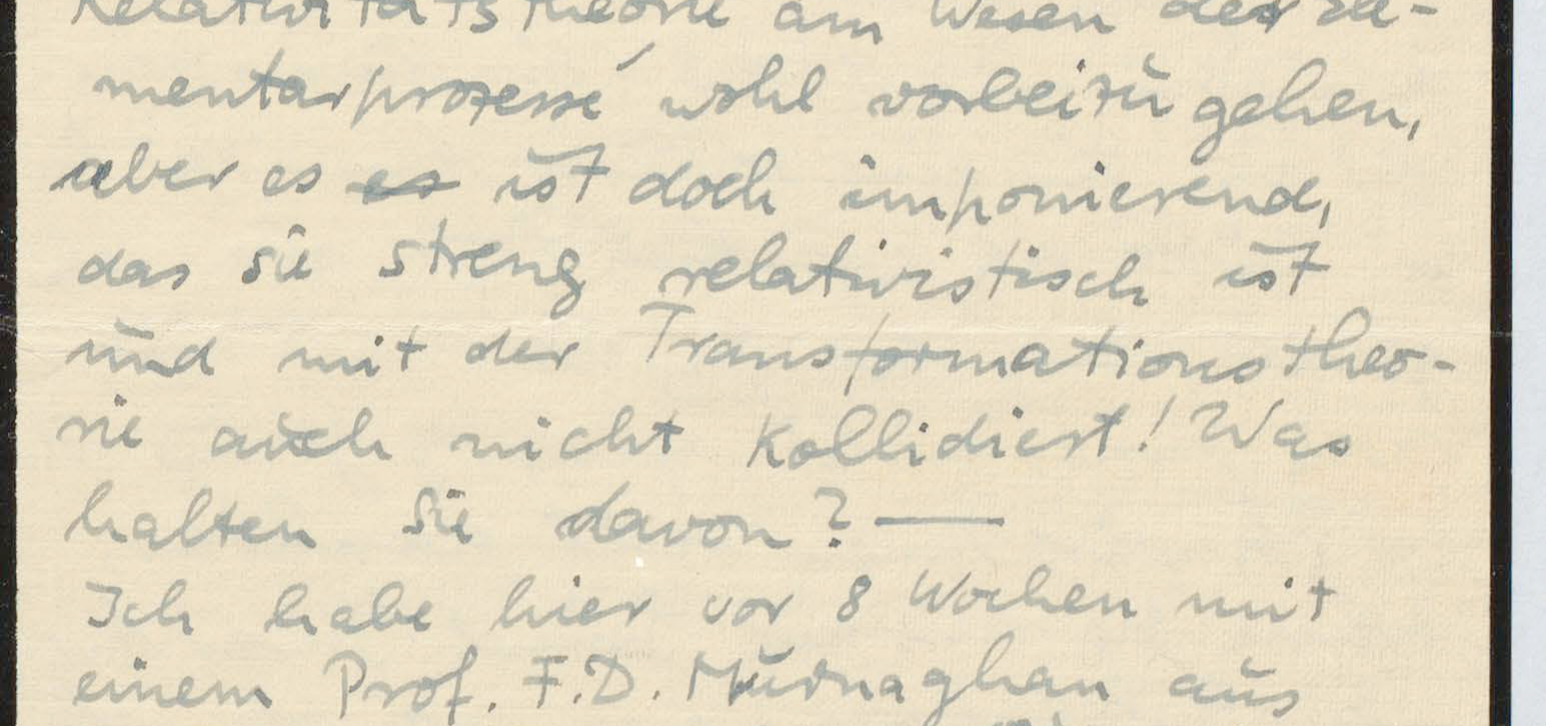 Relativitätstheorie am Wesen der Ele-
mentarprozesse wohl vorbeizugehen,
aber es es ist doch imponierend,
das sie streng relativistisch ist
und mit der Transformationstheo-
rie auch nicht kollidiert! Was
halten Sie davon? —
Ich habe hier vor 8 Wochen mit
einem Prof. F.D. Murnaghan aus